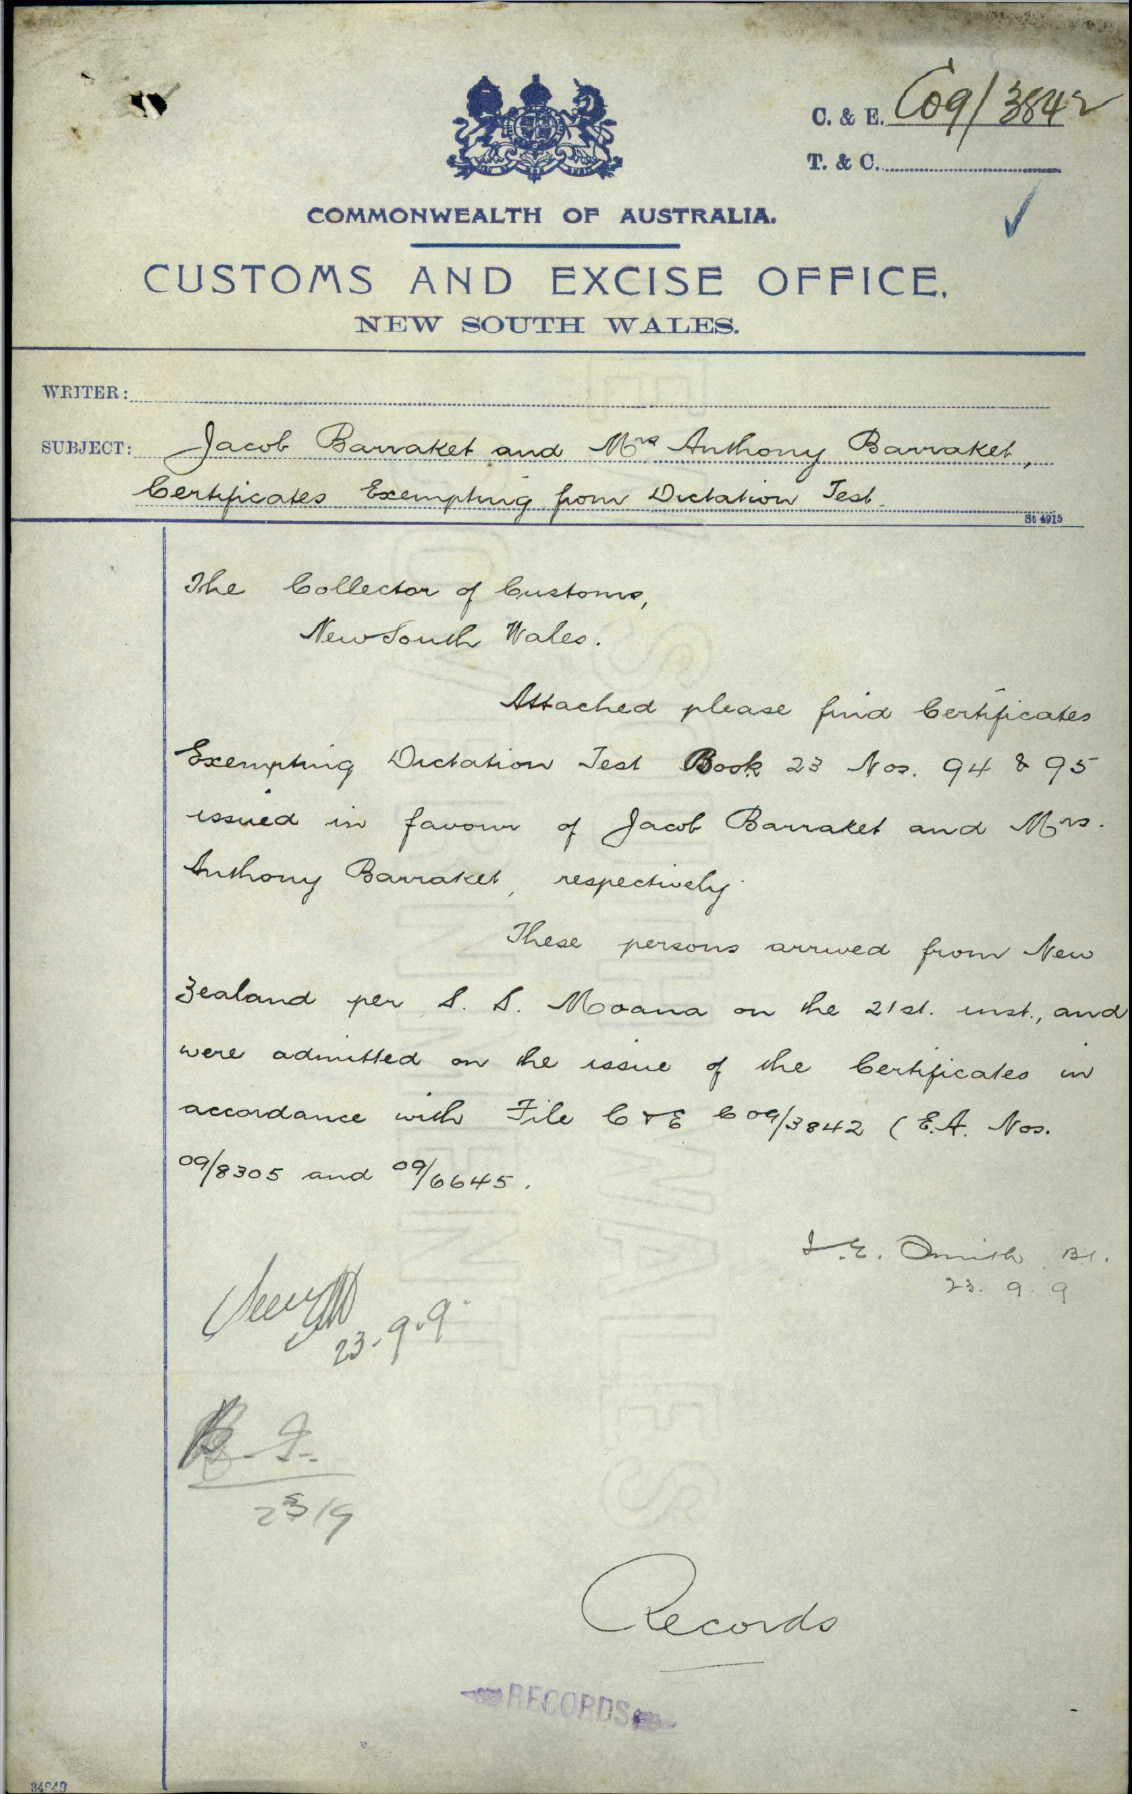 C. & E. C09/3842
T. & C.
COMMONWEALTH OF AUSTRALIA.
CUSTOMS AND EXCISE OFFICE,
NEW SOUTH WALES.
WRITER:
SUBJECT: Jacob Barraket and Mrs Anthony Barraket,
Certificates Exempting from Dictation Test.
St 4915
The Collector of Customs,
New South Wales.
Attached please find Certificates
Exempting Dictation Test Book 23 Nos. 94 & 95
issued in favour of Jacob Barraket and Mrs.
Anthony Barraket, respectively.
These persons arrived from New
Zealand per S. S. Moana on the 21st. inst., and
were admitted on the issue of the Certificates in
accordance with File C & E C 09/3842 (E.A. Nos.
09/8305 and 09/6645.
E. Smith
23. 9. 9
23-9-9
23/9
Records
RECORDS